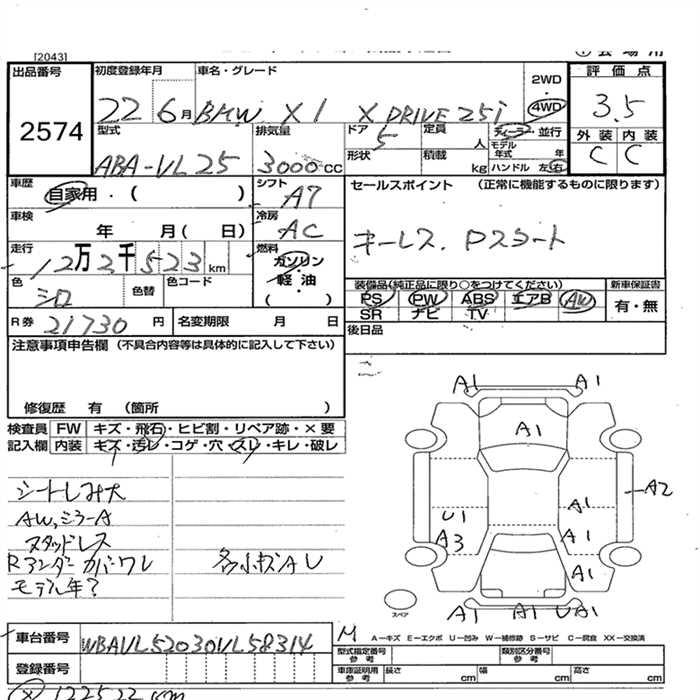 [2043]
出品番号
2574
初度登録年月
22 6月
車名・グレード
BMW X1 X DRIVE 25i
2WD
4WD
評価点
3.5
外装 内装
C C
型式
ABA-VL25
排気量
3000cc
ドア
5
形状
定員
人
積載
kg
ディーラー・並行
モデル年式 年
ハンドル 左右
車歴
自家用・( )
シフト
A7
セールスポイント (正常に機能するものに限ります)
キーレス、Pスタート
車検
年 月( 日)
冷房
AC
走行
12万2千523km
燃料
ガソリン・軽油
( )
色
シロ
色替
色コード
装備品(純正品に限り○をつけてください)
PS PW ABS エアB AW
SR ナビ TV
新車保証書
有・無
R券 21730円
名変期限 月 日
後日品
注意事項申告欄 (不具合内容等は具体的に記入して下さい)
修復歴 有 (箇所 )
検査員記入欄
FW キズ・飛石・ヒビ割・リペア跡・×要
内装 キズ・汚レ・コゲ・穴・スレ・キレ・破レ
シートしみ大
AW,ミラーA
スタッドレス
Rアンダーカバーワレ
モデル年?
各小キズAU
A1 A1
A1
A1
A2
U1
A3
A1
A1
A1 A1 UA1
スペア
車台番号 WBAVL52030VL58314
登録番号
M
A-キズ E-エクボ U-凹み W-補修跡 S-サビ C-腐食 XX-交換済
型式指定番号
参考
類別区分番号
参考
車庫証明用
参考
長さ cm
幅 cm
高さ cm
122522 cm